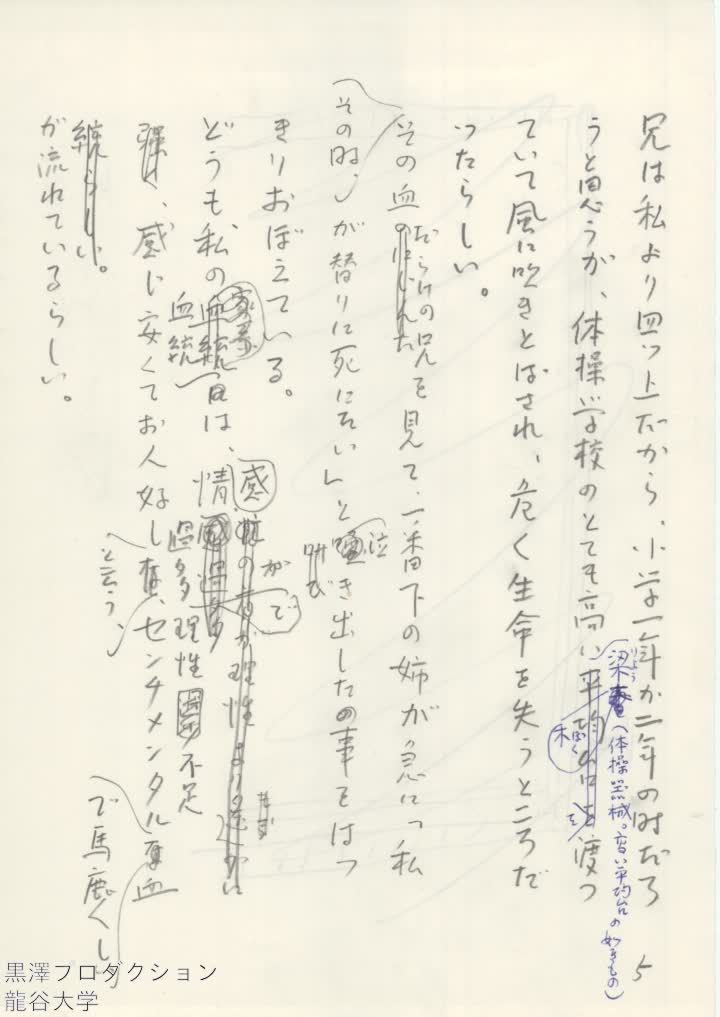 兄は私より四ツ上だから、小学一年か二年の時だろ
うと思うが、体操学校のとても高い平均台を渡つ
梁木(体操器械。高い平均台の如きもの)
りょう
ていて風に吹きとばされ、危く生命を失うところだ
つたらしい。
その血だらけの兄を見て、一番下の姉が急に「私
が替りに死にたい」と泣き出したの事をはつ
その時、
叫び
きりおぼえている。
どうも、私の血統は、
家系
血統
感情
過多
理性不足
で
が
弱く、感じ安くてお人好し
と云う、
センチメンタル
で馬鹿くし
統らしい。
が流れているらしい。
5
黒澤プロダクション
龍谷大学